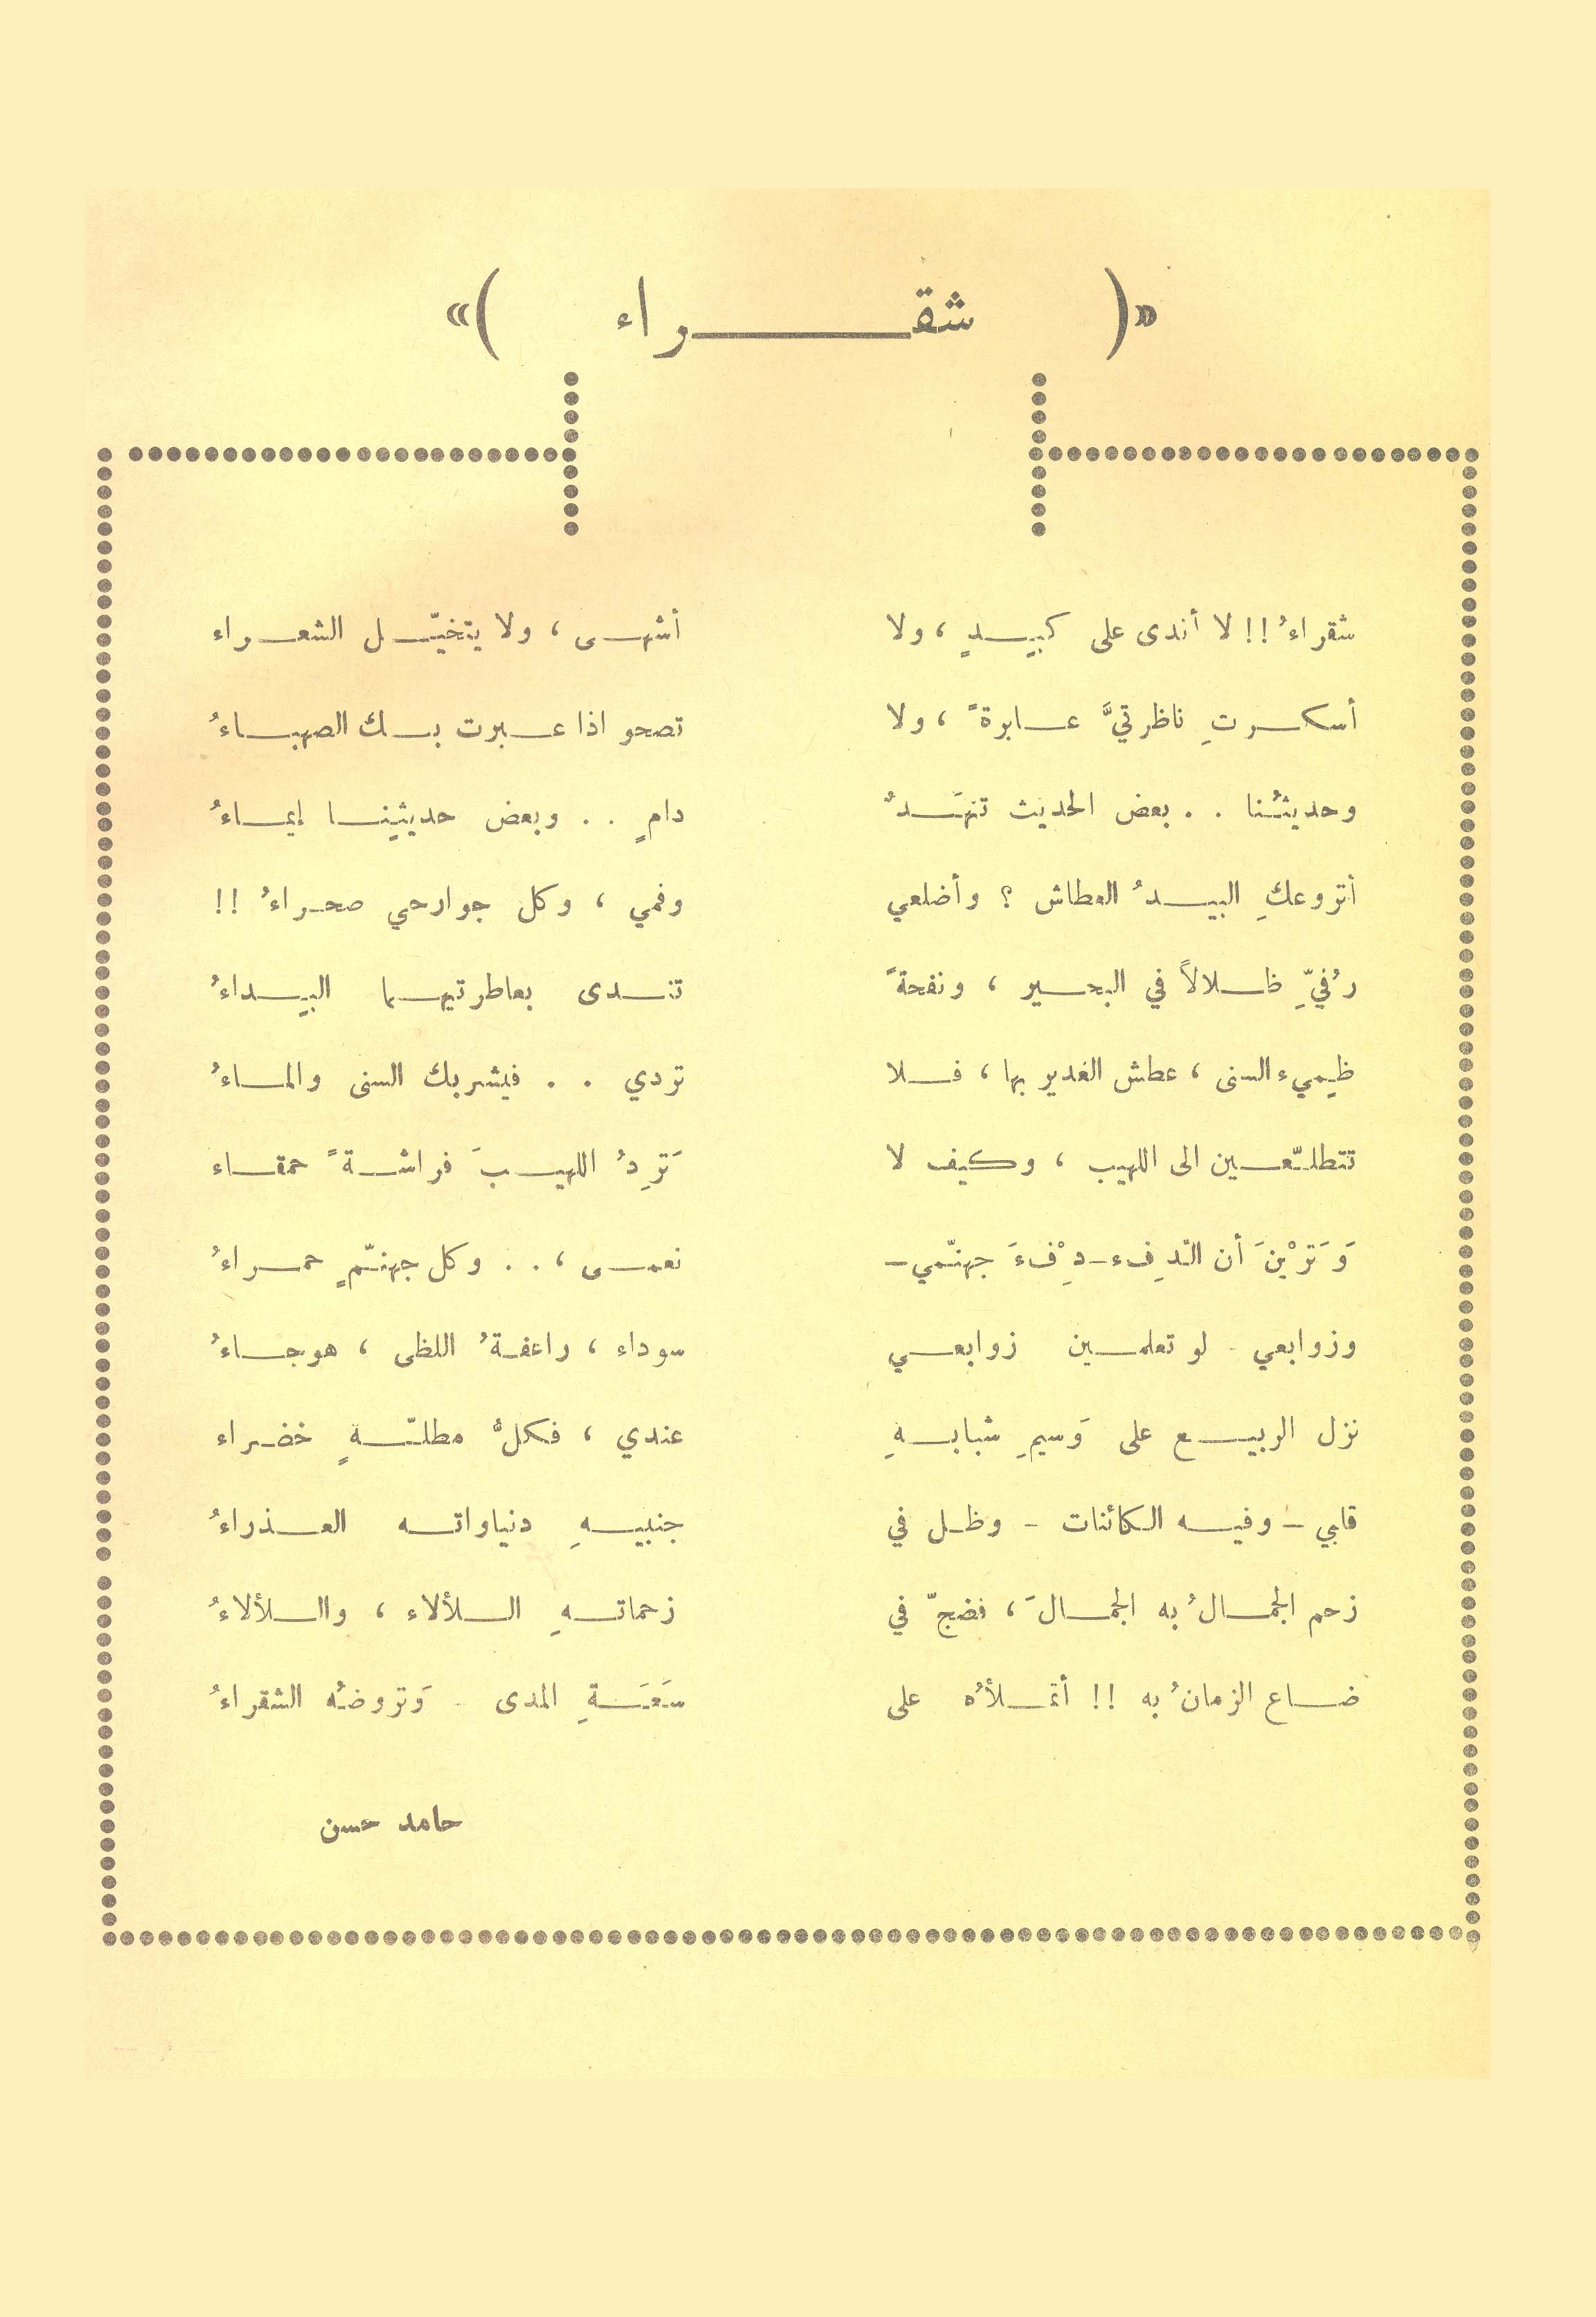 «( شقراء )»
شقراءُ !! لا أندى على كبِدٍ ، ولا أشهى ، ولا يتخيّل الشعراء
أسكرتِ ناظرتيَّ عابرةً ، ولا تصحو اذا عبرت بك الصهباءُ
وحديثُنا . . بعض الحديث تنهَدٌ دامٍ . . وبعض حديثِنا إيماءُ
أتروعكِ البيدُ العطاش ؟ وأضلعي وفمي ، وكل جوارحي صحراءُ !!
رُفيِّ ظلالاً في الهجير ، ونفحةً تندى بعاطرتيهما البيداءُ
ظمِيء السنى ، عطش الغدير بها ، فلا تردي . . فيشربك السنى والماءُ
تتطلّعين الى اللهيب ، وكيف لا تَرِدُ اللهيبَ فراشةً حمقاء
وَتَرْينَ أن الدِفء - دِفْءَ جهنّمي - نعمى ، . . وكل جهنّمٍ حمراءُ
وزوابعي - لو تعلمين زوابعي سوداء ، راعفةُ اللظى ، هوجاءُ
نزل الربيع على وَسيمِ شبابهِ عندي ، فكلُّ مطلّةٍ خضراء
قلبي - وفيه الكائنات - وظل في جنبيهِ دنياواته العذراءُ
زحم الجمالُ به الجمالَ ، فضجّ في زحماتهِ اللألاء ، واللألاءُ
ضاع الزمانُ به !! أتملأُه على سَعَةِ المدى - وَتروضُه الشقراءُ
حامد حسن